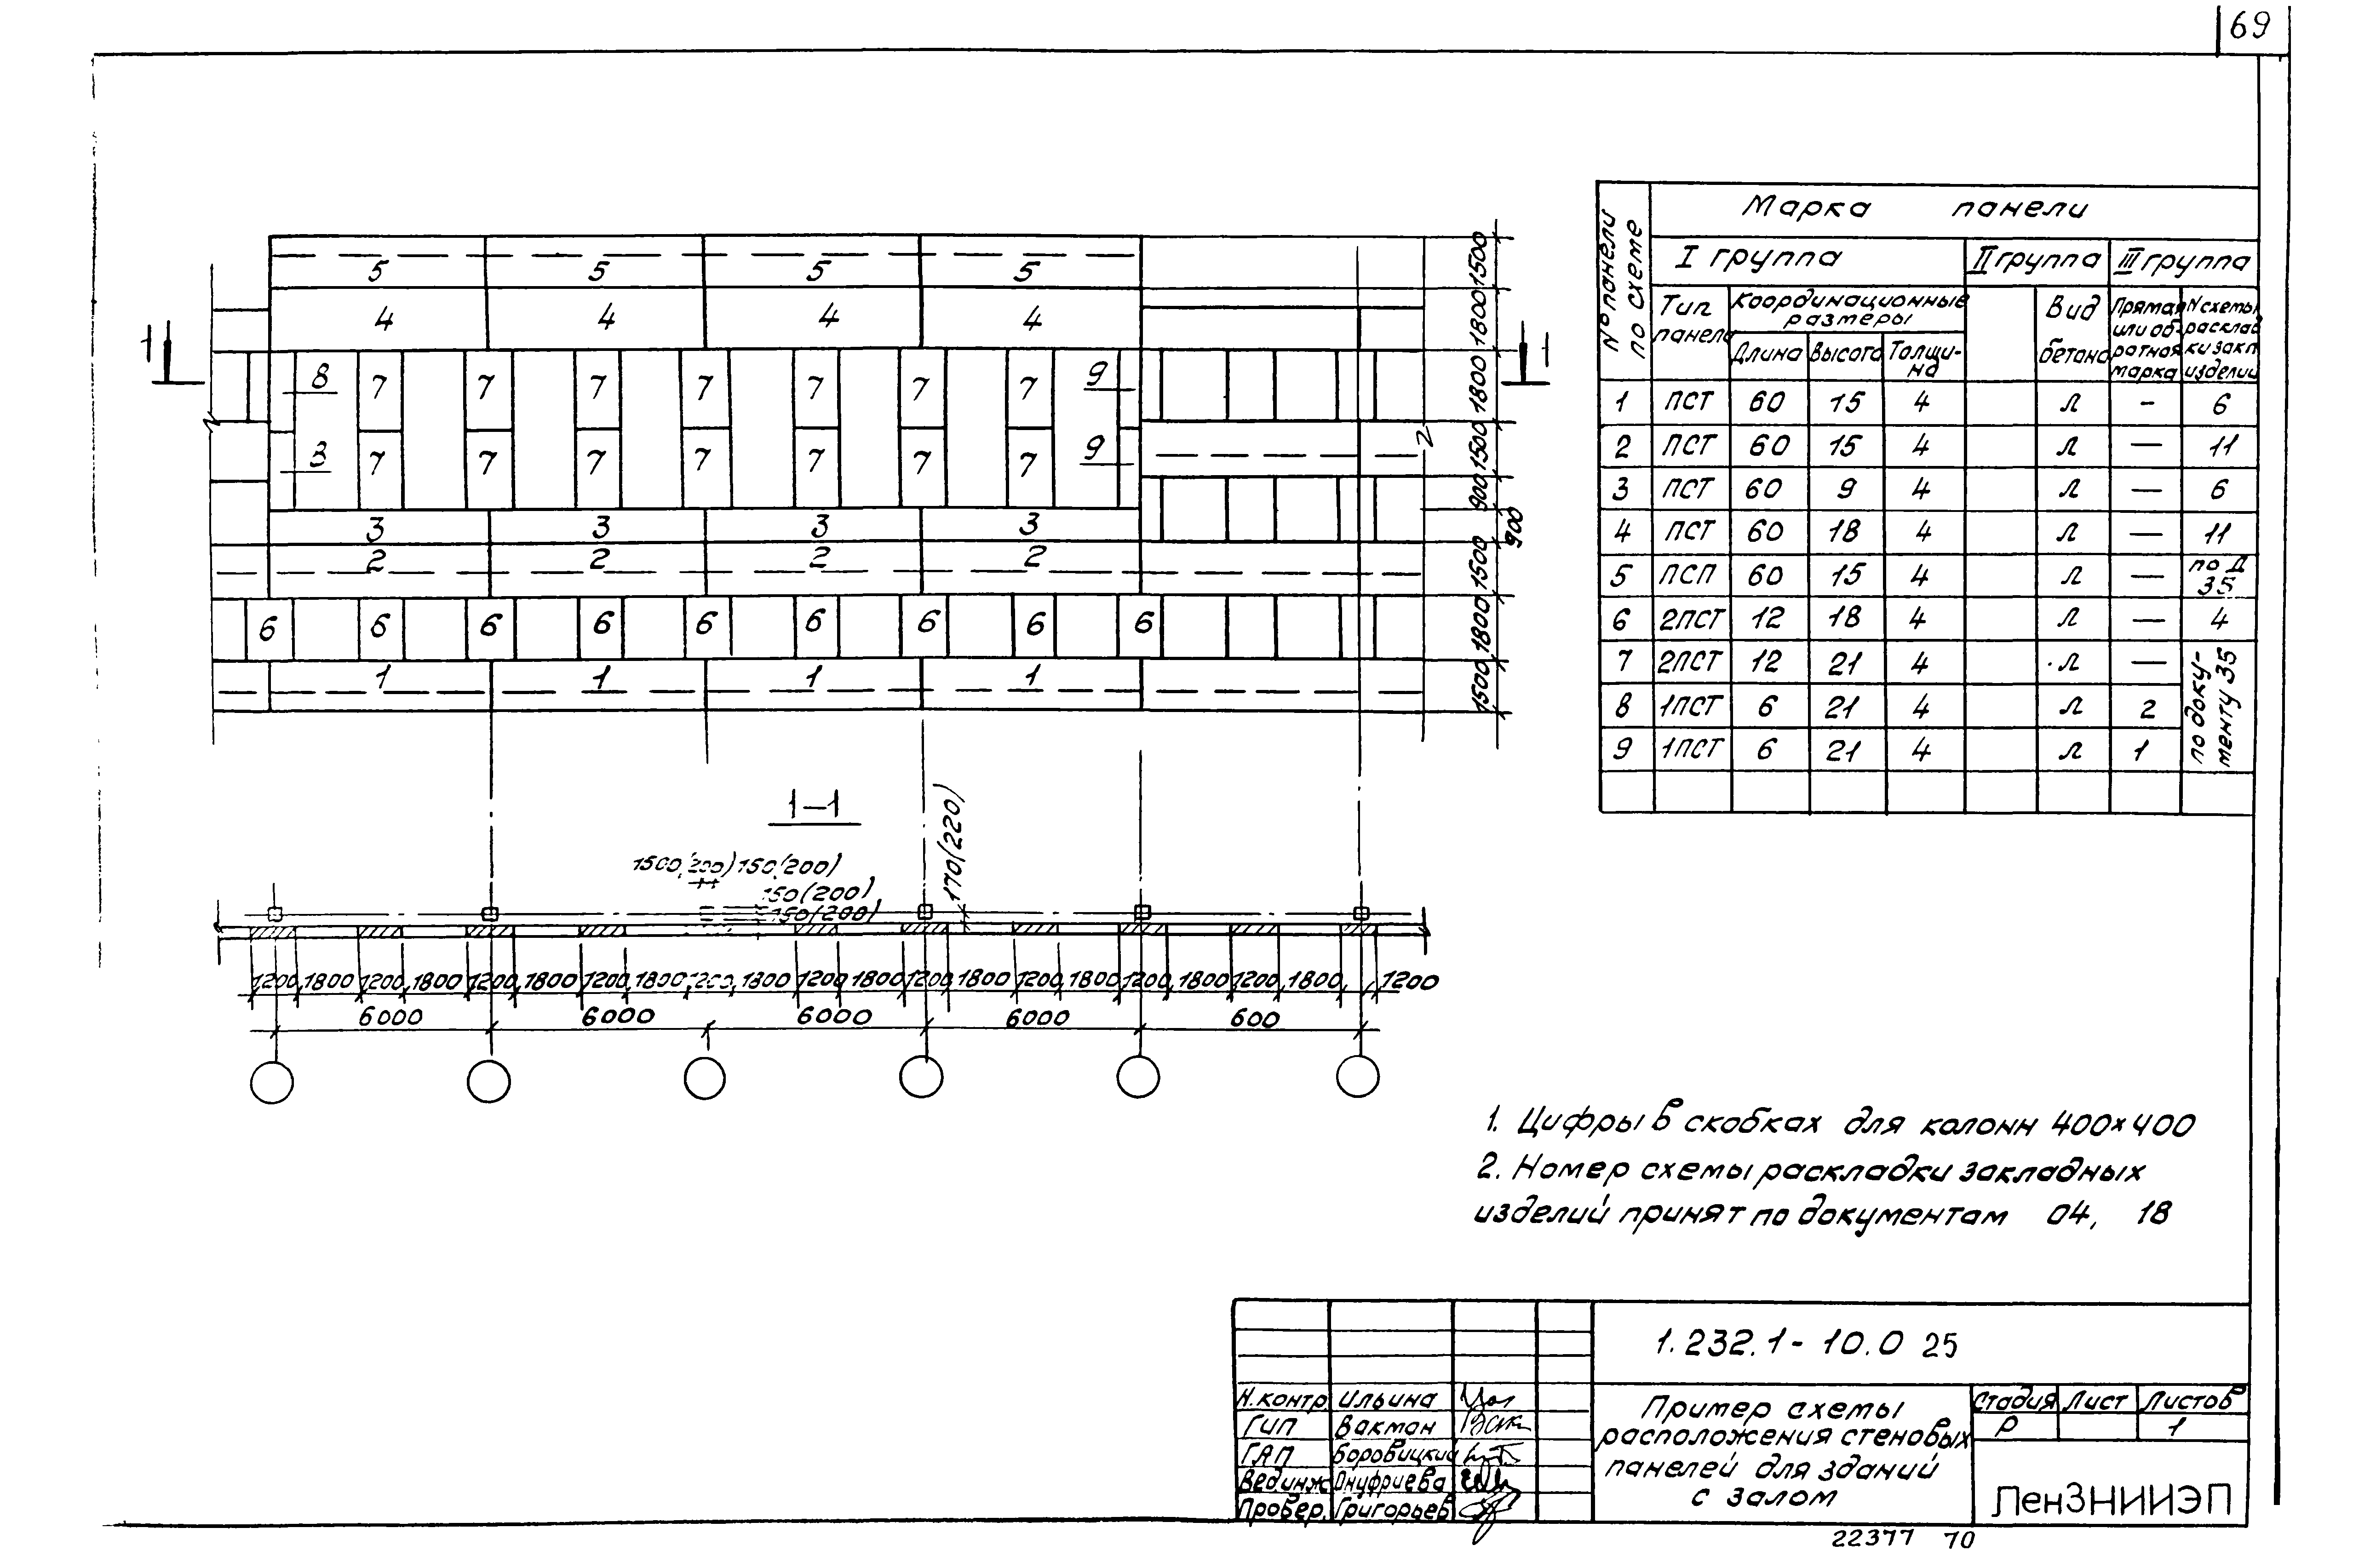 69
5 5 5 5
4 4 4 4
1
1
8 7 7 7 7 7 7 7 9
3 7 7 7 7 7 7 7 9
3 3 3 3
2 2 2 2
6 6 6 6 6 6 6 6 6
1 1 1 1
1500
1800
1800
1500
900
900
1500
1800
1500
1–1
170(220)
1500(200) 150(200)
150(200)
150(200)
1200 1800 1200 1800 1200 1800 1200 1800 1200 1800 1200 1800 1200 1800 1200 1800 1200 1800 1200 1800 1200
6000 6000 6000 6000 600
№ панели по схеме
Марка панели
I группа II группа III группа
Тип панели
Координационные размеры
Длина Высота Толщи-на
Вид бетона
Прямая или об-ратная марка
N схемы расклад ки закл. изделий
1 ПСТ 60 15 4 Л – 6
2 ПСТ 60 15 4 Л — 11
3 ПСТ 60 9 4 Л — 6
4 ПСТ 60 18 4 Л — 11
5 ПСП 60 15 4 Л — по Д 35
6 2ПСТ 12 18 4 Л — 4
7 2ПСТ 12 21 4 Л —
8 1ПСТ 6 21 4 Л 2
9 1ПСТ 6 21 4 Л 1
по доку-
менту 35
1. Цифры в скобках для колонн 400×400
2. Номер схемы раскладки закладных
изделий принят по документам 04, 18
1.232.1-10.0 25
Н.контр. Ильина
ГИП Вакман
ГАП Боровицкий
Вед.инж Онуфриева
Провер. Григорьев
Пример схемы
расположения стеновых
панелей для зданий
с залом
Стадия Лист Листов
Р 1
ЛенЗНИИЭП
22377 70